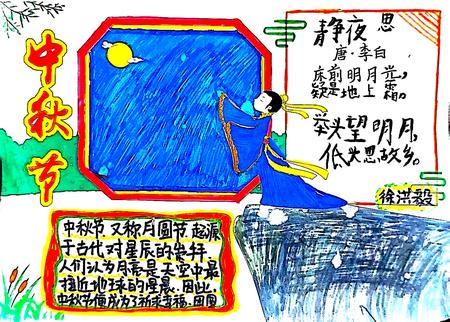 中秋节
静夜思
唐·李白
床前明月光，
疑是地上霜。
举头望明月，
低头思故乡。
徐洪毅
中秋节又称月圆节起源
于古代对星辰的崇拜
人们认为月亮是天空中最
接近地球的星晨.因此，
中秋节便成为了祈求幸福、团圆